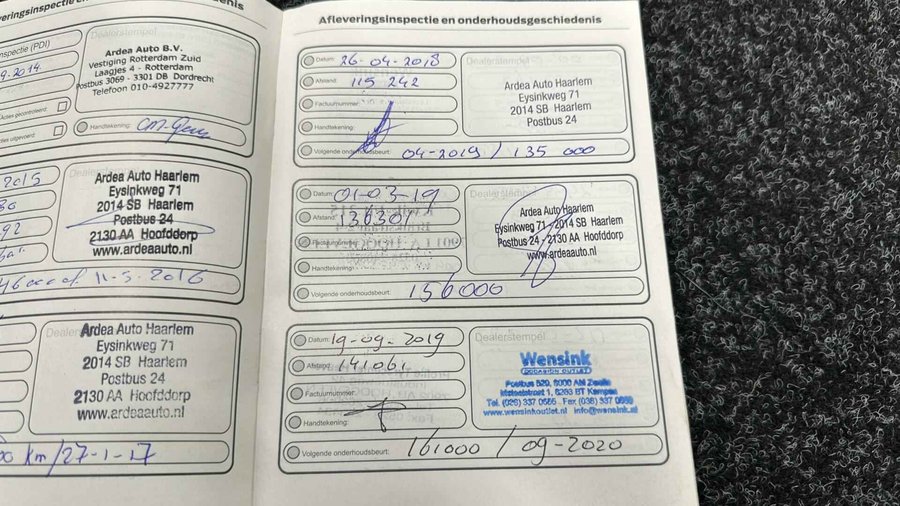 Afleveringsinspectie en onderhoudsgeschiedenis
nspectie (PDI)
9.2014
Dealerstempel
Ardea Auto B.V.
Vestiging Rotterdam Zuid
Laagjes 4 - Rotterdam
Postbus 3069 - 3301 DB Dordrecht
Telefoon 010-4927777
Handtekening:
2015
Ardea Auto Haarlem
Eysinkweg 71
2014 SB Haarlem
Postbus 24
2130 AA Hoofddorp
www.ardeaauto.nl
11-3-2016
Ardea Auto Haarlem
Eysinkweg 71
2014 SB Haarlem
Postbus 24
2130 AA Hoofddorp
www.ardeaauto.nl
km/27-1-17
Afleveringsinspectie en onderhoudsgeschiedenis
Datum: 26-04-2018
Afstand: 115 242
Factuurnummer:
Handtekening:
Volgende onderhoudsbeurt: 04-2019 / 135 000
Dealerstempel
Ardea Auto Haarlem
Eysinkweg 71
2014 SB Haarlem
Postbus 24
Datum: 01-03-19
Afstand: 136301
Factuurnummer:
Handtekening:
Volgende onderhoudsbeurt: 156000
Dealerstempel
Ardea Auto Haarlem
Eysinkweg 71 - 2014 SB Haarlem
Postbus 24 - 2130 AA Hoofddorp
www.ardeaauto.nl
Datum: 19-09-2019
Afstand: 141.061
Factuurnummer:
Handtekening:
Volgende onderhoudsbeurt: 161000 / 09-2020
Dealerstempel
Wensink
OCCASION OUTLET
Postbus 529, 8000 AM Zwolle
1, 8263 BT Kampen
www.wensinkoutlet.nl info@wensink.nl